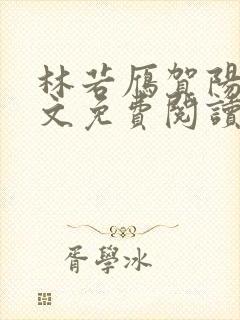 林若雁賀陽
文免費閱讀
胥學冰